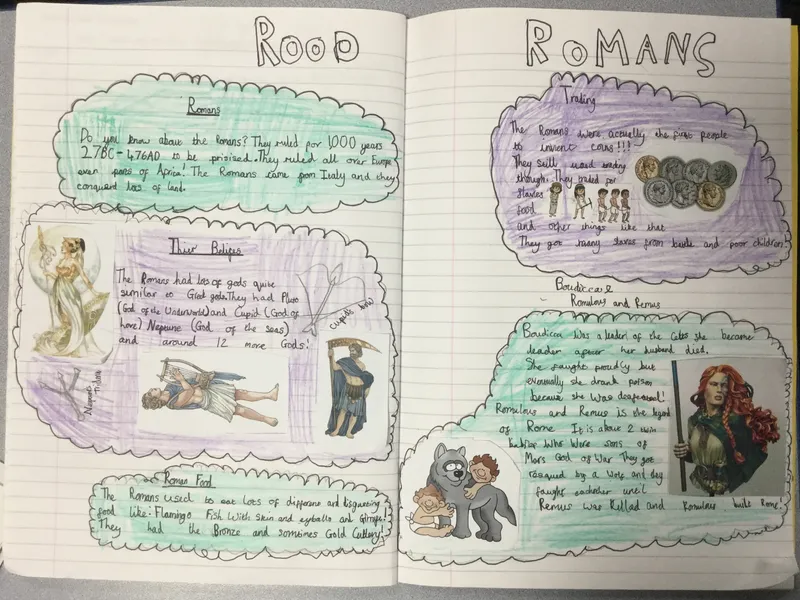 ROOD
Romans
Do you know about the Romans? They ruled for 1,000 years
27BC - 476AD to be prisised. They ruled all over Europe
even parts of Africa! The Romans came from Italy and they
conquerd lots of land.
Thier Beliefes
The Romans had lots of gods quite
similar to Greet gods. They had Pluto
(God of the Underworld) and Cupid (God of
love) Neptune (God of the seas)
and around 12 more Gods!
Cupids bow
Neptunes Tridont
Roman Food
The Romans used to eat lots of different and disgusting
food like: Flamingo Fish With Skin and eyeballs and Giraffe.
They had the Bronze and somtimes Gold Cutlery.
ROMANS
Trading
The Romans were actually the first people
to invent coins!!!
They still used trading
though. They traded for
Slaves
food
and other things like that
They got many slaves from battle and poor children
Boudicca &
Romulous and Remus
Boudicca was a leader of the Celts she became
leader after her husband died.
She fought proudly but
eventually she drank poison
because she was defeated!
Romulous and Remus is the legend
of Rome It is about 2 twin
Who Were sons of
Mars God of War They got
resqued by a wolf and they
faught eachother until
Remus was Killed and Romulous built Rome!